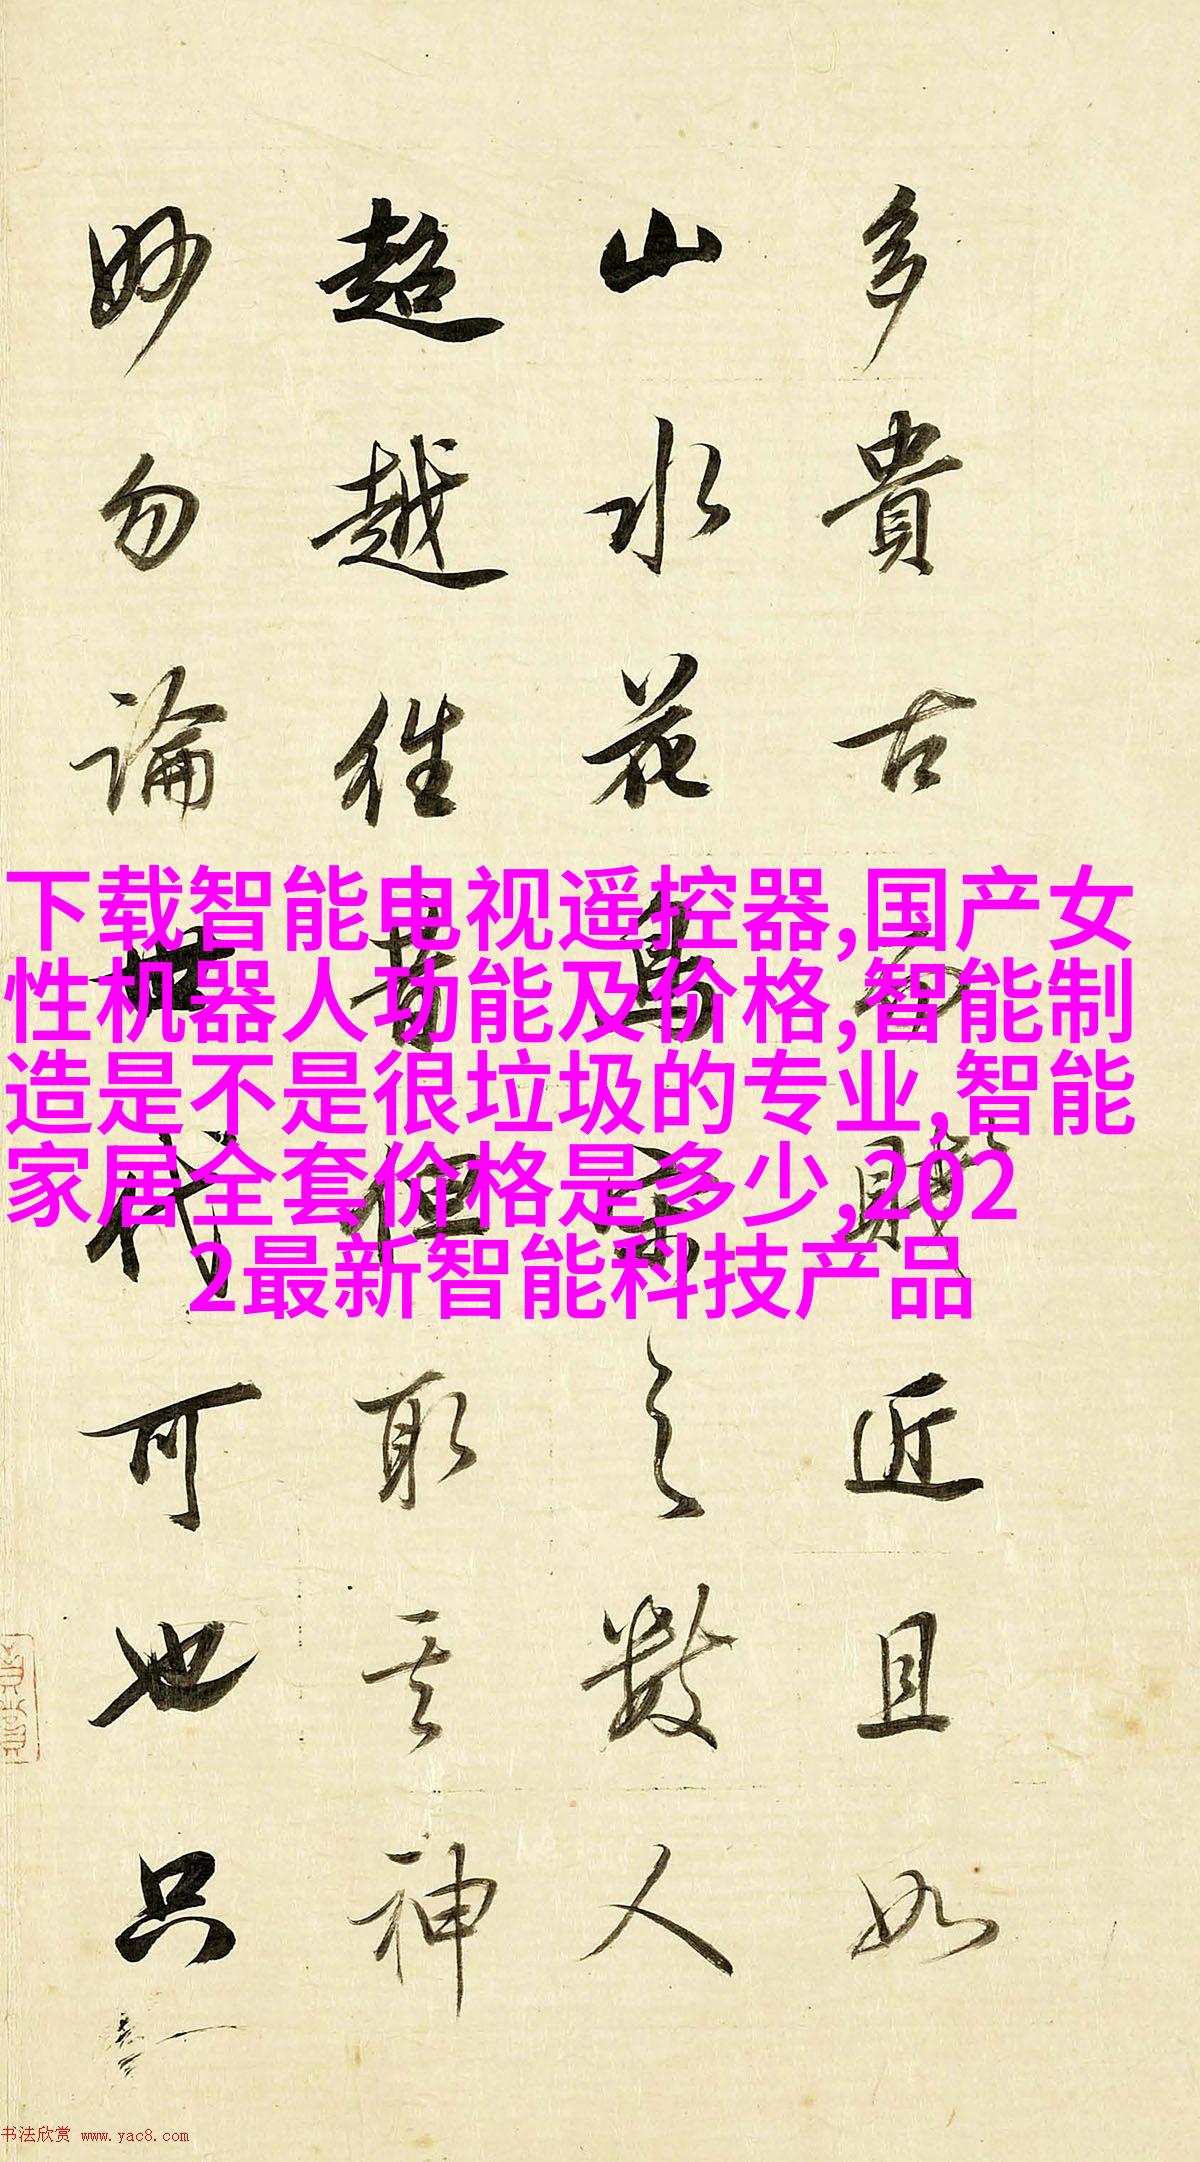 多貴古而賤近且如
山水花鳥宋之數人
超越往昔但取其神
妙勿論世代可也只
下载智能电视遥控器,国产女
性机器人功能及价格,智能制
造是不是很垃圾的专业,智能
家居全套价格是多少,202
2最新智能科技产品
书法欣赏 www.yac8.com